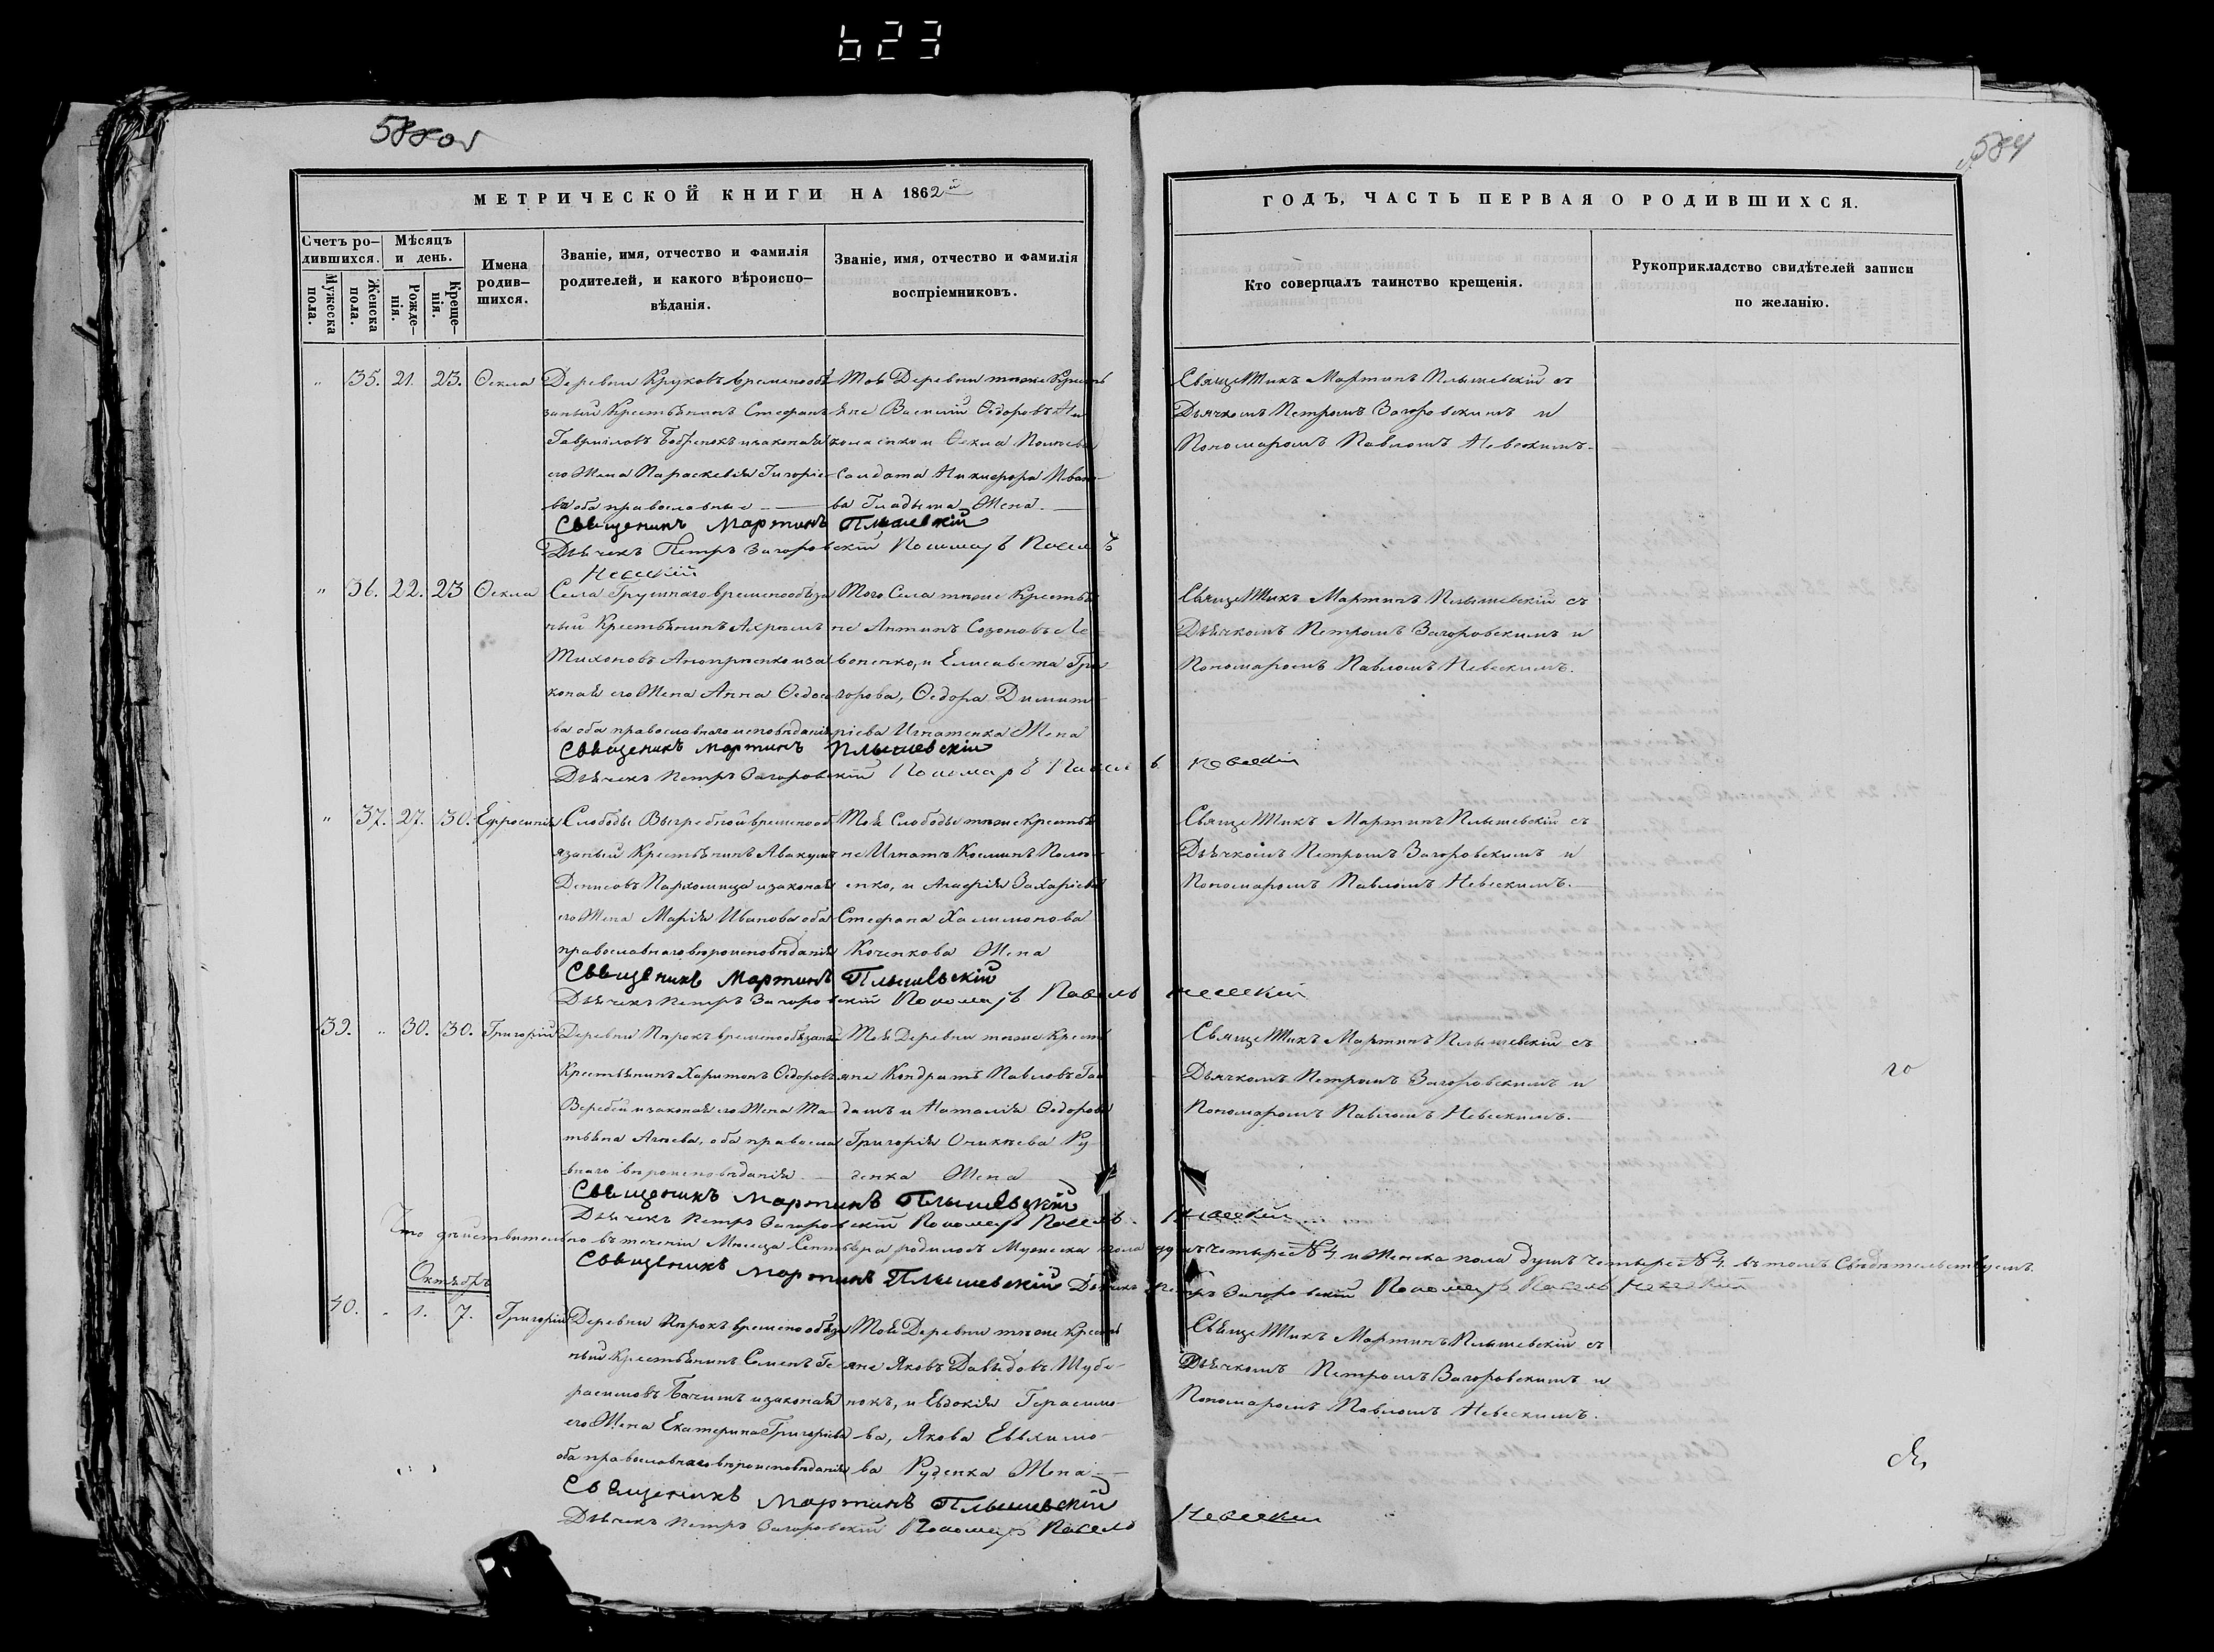 623
588об
589
МЕТРИЧЕСКОЙ КНИГИ НА 1862й
ГОДЪ, ЧАСТЬ ПЕРВАЯ О РОДИВШИХСЯ.
Счетъ ро-
дившихся.
Мужеска пола.
Женска пола.
Мѣсяцъ
и день.
Рожде-
нія.
Креще-
нія.
Имена
родив-
шихся.
Званіе, имя, отчество и фамилія
родителей, и какого вѣроиспо-
вѣданія.
Званіе, имя, отчество и фамилія
воспріемниковъ.
Кто совершалъ таинство крещенія.
Рукоприкладство свидѣтелей записи
по желанію.
" 35. 21. 23. Ѳекла
Деревни Круковъ временнооб
занный Крестьянинъ Стефанъ
Гавриловъ и законная
его Жена Параскевія Григорiе
ва оба православные
Той Деревни тоже Крестья
яне Василій Ѳедоровъ Ни
коленко и Ѳекла
Солдата Никифора Ивано
ва Гладыша Жена
Священникъ Мартинъ Плышевскій съ
Дьячкомъ Петромъ Загоровскимъ и
Пономаромъ Павломъ Невескимъ.
Священикъ Мартинъ Плышевскій
Дьячекъ Петръ Загоровскій Пономарь Павелъ
Невескій
" 36. 22. 23 Ѳекла
Села Грушнаго временообяза
ный Крестьянинъ
Тихоновъ и за
коная его Жена Анна Ѳедосѣе
ва оба православнаго исповѣданія
Того Села тоже Крестья
не Антипъ Созоновъ Ле
воненко, и Елисавета Гри
горова, Ѳедора Димит
ріева Игнатенка Жена
Священникъ Мартинъ Плышевскій съ
Дьячкомъ Петромъ Загоровскимъ и
Пономаромъ Павломъ Невескимъ.
Священикъ Мартинъ Плышевскій
Дьячекъ Петръ Загоровскій Пономарь Павелъ Невескій
" 37. 27. 30. Ефросинія
Слободы Выгребной временооб
язаный Крестьянинъ Авакумъ
Денисовъ Пархомица и законая
его Жена Марія Иванова оба
православнаго вѣроисповѣданія
Той Слободы тоже Крестья
не Игнатъ Косминъ
енко, и Агафія Захаріева
Стефана Халимонова
Коченкова Жена
Священникъ Мартинъ Плышевскій съ
Дьячкомъ Петромъ Загоровскимъ и
Пономаромъ Павломъ Невескимъ.
Священикъ Мартинъ Плышевскій
Дьячекъ Петръ Загоровскій Пономарь Павелъ Невескій
39. " 30. 30. Григорій
Деревни Пѣрокъ временообязаный
Крестьянинъ Харитонъ Ѳедоровъ
Веребей и законая его Жена Та
тьяна Агѣева, оба правосла
внаго вѣроисповѣданія
Той Деревни тоже Кресть
яне Кондратъ Павловъ Гай
дашъ и Наталія Ѳедорова
Григорія Ру
денка Жена
Священникъ Мартинъ Плышевскій съ
Дьячкомъ Петромъ Загоровскимъ и
Пономаромъ Павломъ Невескимъ.
Священикъ Мартинъ Плышевскій
Дьячекъ Петръ Загоровскій Пономарь Павелъ Невескій
Что дѣйствительно въ теченіи Мѣсяца Сентября родилось Мужеска пола душъ четыре № 4. и Женска пола душъ четыре № 4. въ томъ Свидѣтельствуемъ.
Священикъ Мартинъ Плышевскій Дьячекъ Петръ Загоровскій Пономарь Павелъ Невескій
Октябрь
40. " 1. 7. Григорій
Деревни Пѣрокъ временообяза
ный Крестьянинъ Семенъ Ге
расимовъ Бачитъ и законая
его Жена Екатерина Григоріева
оба православнаго вѣроисповѣданія
Той Деревни тоже Кресть
яне Яковъ Давыдовъ Шубе
нокъ, и Евдокія Герасимо
ва, Якова Евхимо
ва Руденка Жена
Священникъ Мартинъ Плышевскій съ
Дьячкомъ Петромъ Загоровскимъ и
Пономаромъ Павломъ Невескимъ.
Священикъ Мартинъ Плышевскій
Дьячекъ Петръ Загоровскій Пономарь Павелъ Невескій